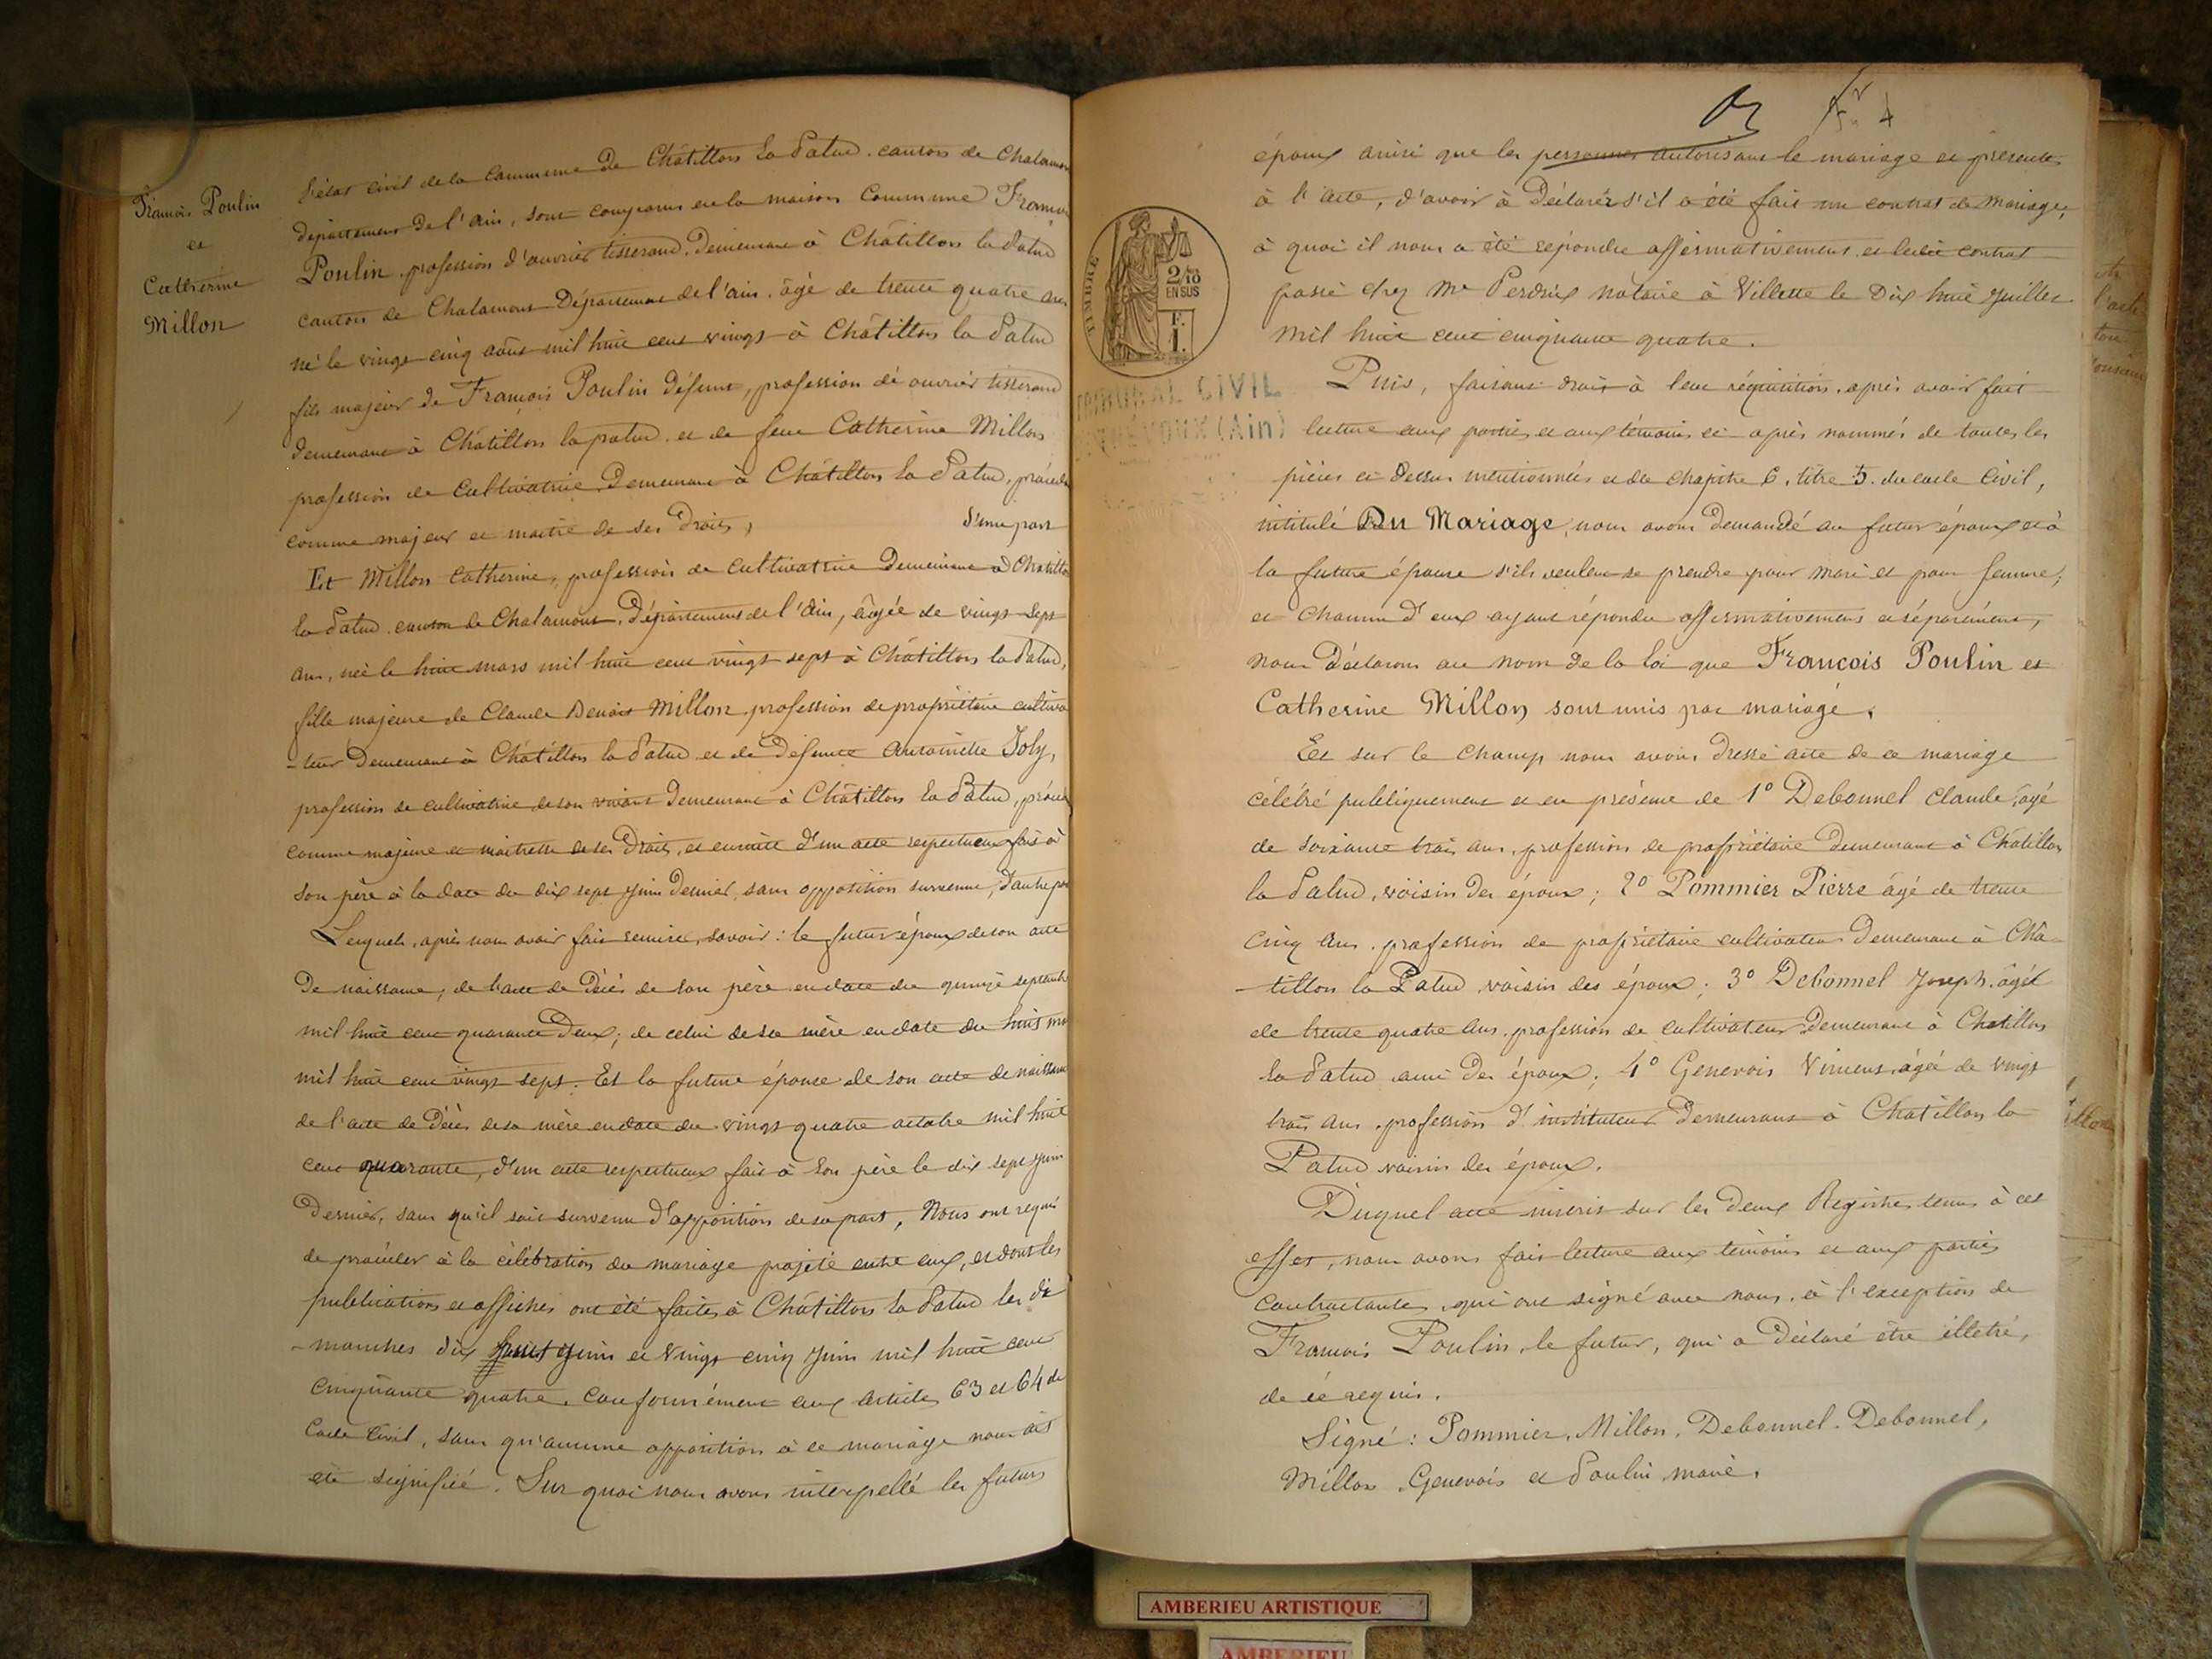 François Poulin
et
Catherine
Millon
l'état civil de la Commune de Châtillon la Palud, canton de Chalamon
département de l'ain, sont comparus en la maison Commune Franço
Poulin, profession d'ouvrier tisserand, Demeurant à Châtillon la Palud
canton de Chalamont Département de l'ain, âgé de trente quatre ans
né le vingt cinq août mil huit cent vingt à Châtillon la Palud
fils majeur de François Poulin défunt, profession de ouvrier tisserand
demeurant à Châtillon la palud, et de feue Catherine Millon
profession de Cultivatrice Demeurant à Châtillon la Palud, procéda
comme majeur et maître de ses Droits, d'une part
Et Millon Catherine, profession de Cultivatrice Demeurant à Chatillo
la Palud, canton de Chalamont, Département de l'Ain, âgée de vingt sept
ans, née le huit mars mil huit cent vingt sept à Châtillon la Palud,
fille majeure de Claude Benoit Millon, profession de propriétaire cultiva
-teur Demeurant à Châtillon la Palud et de Défunte Antoinette Joly,
profession de cultivatrice, de son vivant Demeurant à Châtillon la Palud, procéd
comme majeure et maîtresse de ses Droits, et ensuite d'un acte respectueux fait à
son père à la date du dix sept Juin Dernier, sans opposition survenue, d'autre par
Lesquels, après nous avoir fait remise, savoir : le futur époux de son acte
De naissance, de l'acte de Décès de son père en date du quinze septemb
mil huit cent quarante Deux ; de celui de sa mère en date du huit ma
mil huit cent vingt sept. Et la future épouse de son acte de naissanc
de l'acte de Décès de sa mère en date du vingt quatre octobre mil huit
cent quarante, d'un acte respectueux fait à son père le dix sept Juin
Dernier, sans qu'il soit survenu d'opposition de sa part, Nous ont requis
de procéder à la célébration du mariage projeté entre eux, et dont les
publications et affiches ont été faites à Châtillon la Palud les di
-manches dix huit Juin et vingt cinq Juin mil huit cent
cinquante quatre, conformément aux articles 63 et 64 du
Code Civil, sans qu'aucune opposition à ce mariage nous ait
été signifiée. Sur quoi nous avons interpellé les futurs
époux ainsi que les personnes autorisant le mariage et présentes
à l'acte, d'avoir à Déclarer s'il a été fait un contrat de Mariage,
à quoi il nous a été répondu affirmativement et ledit contrat
passé chez Me Perdrix notaire à Villette le Dix huit Juillet
mil huit cent cinquante quatre.
TIMBRE
2/10
EN SUS
F.
1.
TRIBUNAL CIVIL
TRÉVOUX (Ain)
Puis, faisant droit à leur réquisition, après avoir fait
lecture aux parties et aux témoins ci-après nommés de toutes les
pièces ci Dessus mentionnées et du Chapitre 6, titre 5. du code Civil,
intitulé Du Mariage, nous avons Demandé au futur époux et à
la future épouse s'ils veulent se prendre pour Mari et pour femme,
et chacun D'eux ayant répondu affirmativement et séparément,
nous Déclarons au nom de la loi que François Poulin et
Catherine Millon sont unis par mariage.
Et sur le Champ nous avons Dressé acte de ce mariage
célébré publiquement et en présence de 1° Debonnel Claude, âgé
de soixante trois ans, profession de propriétaire demeurant à Chatillon
la Palud, voisin Des époux ; 2° Pommier Pierre âgé de trente
cinq ans, profession de propriétaire cultivateur Demeurant à Châ-
-tillon la Palud voisin des époux ; 3° Debonnel Joseph, âgé
de trente quatre ans, profession de Cultivateur Demeurant à Chatillon
la Palud ami Des époux ; 4° Genevois Vincent âgé de vingt
trois ans, profession D'instituteur Demeurant à Chatillon la
Palud voisin des époux.
Duquel acte inscrit sur les Deux Registres tenus à cet
effet, nous avons fait lecture aux témoins et aux parties
contractantes, qui ont signé avec nous, à l'exception de
François Poulin, le futur, qui a Déclaré être illetré,
de ce requis.
Signé : Pommier, Millon, Debonnel, Debonnel,
Millon, Genevois et Poulin, maire.
AMBERIEU ARTISTIQUE
AMBERIEU